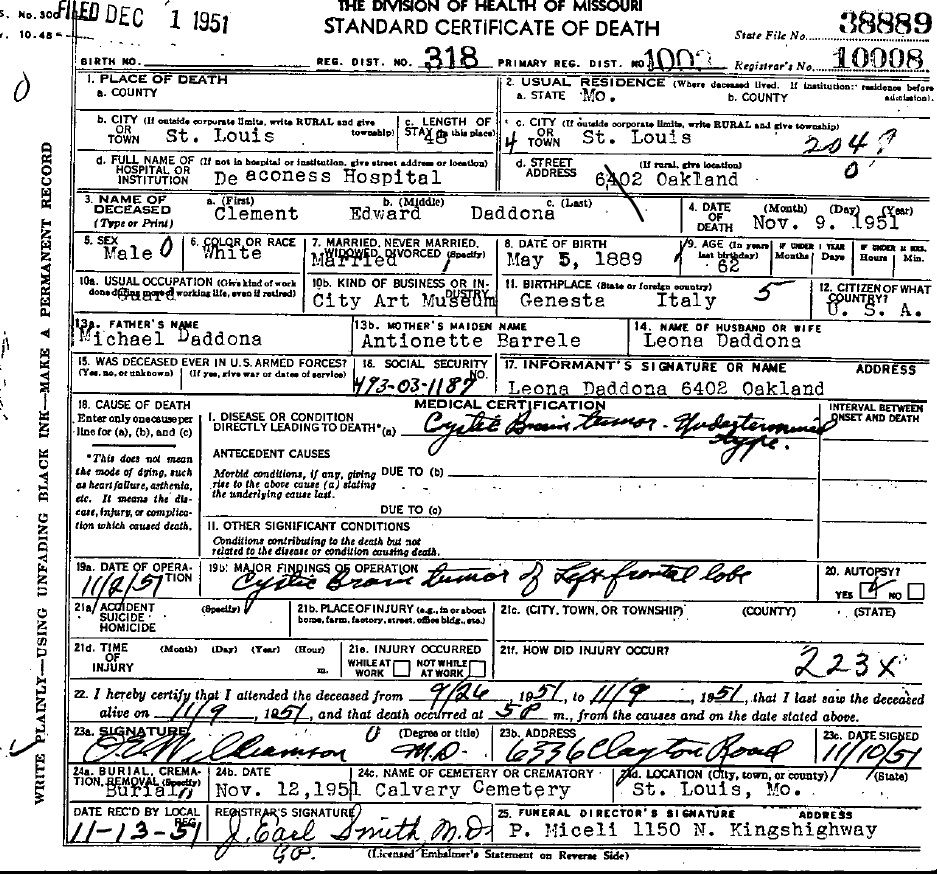 S. No. 300 FILED DEC 1 1951 THE DIVISION OF HEALTH OF MISSOURI 38889
v. 10.48 STANDARD CERTIFICATE OF DEATH State File No.
BIRTH NO. REG. DIST. NO. 318 PRIMARY REG. DIST. NO. 1003 Registrar's No. 10008
1. PLACE OF DEATH
a. COUNTY
2. USUAL RESIDENCE (Where deceased lived. If institution: residence before admission).
a. STATE Mo. b. COUNTY
b. CITY (If outside corporate limits, write RURAL and give township) OR TOWN St. Louis
c. LENGTH OF STAY (in this place) 48
c. CITY (If outside corporate limits, write RURAL and give township) OR TOWN St. Louis
d. FULL NAME OF HOSPITAL OR INSTITUTION (If not in hospital or institution, give street address or location) Deaconess Hospital
d. STREET ADDRESS (If rural, give location) 6402 Oakland
3. NAME OF DECEASED (Type or Print)
a. (First) Clement b. (Middle) Edward c. (Last) Daddona
4. DATE OF DEATH (Month) (Day) (Year) Nov. 9. 1951
5. SEX Male
6. COLOR OR RACE White
7. MARRIED, NEVER MARRIED, WIDOWED, DIVORCED (Specify) Married
8. DATE OF BIRTH May 5, 1889
9. AGE (In years last birthday) 62 IF UNDER 1 YEAR Months Days IF UNDER 24 HRS. Hours Min.
10a. USUAL OCCUPATION (Give kind of work done during most of working life, even if retired) Guard
10b. KIND OF BUSINESS OR INDUSTRY City Art Museum
11. BIRTHPLACE (State or foreign country) Genesta Italy 5
12. CITIZEN OF WHAT COUNTRY? U. S. A.
13a. FATHER'S NAME Michael Daddona
13b. MOTHER'S MAIDEN NAME Antionette Barrele
14. NAME OF HUSBAND OR WIFE Leona Daddona
15. WAS DECEASED EVER IN U.S. ARMED FORCES? (Yes, no, or unknown) (If yes, give war or dates of service)
16. SOCIAL SECURITY NO. 493-03-1187
17. INFORMANT'S SIGNATURE OR NAME ADDRESS
Leona Daddona 6402 Oakland
18. CAUSE OF DEATH
Enter only one cause per line for (a), (b), and (c)
*This does not mean the mode of dying, such as heart failure, asthenia, etc. It means the disease, injury, or complication which caused death.
MEDICAL CERTIFICATION
INTERVAL BETWEEN ONSET AND DEATH
I. DISEASE OR CONDITION DIRECTLY LEADING TO DEATH* (a) Cystic Brain tumor - Undetermined type.
ANTECEDENT CAUSES
Morbid conditions, if any, giving rise to the above cause (a) stating the underlying cause last.
DUE TO (b)
DUE TO (c)
II. OTHER SIGNIFICANT CONDITIONS
Conditions contributing to the death but not related to the disease or condition causing death.
19a. DATE OF OPERATION 11/2/51
19b. MAJOR FINDINGS OF OPERATION Cystic Brain tumor of Left frontal lobe
20. AUTOPSY? YES NO
21a. ACCIDENT SUICIDE HOMICIDE (Specify)
21b. PLACE OF INJURY (e.g., in or about home, farm, factory, street, office bldg., etc.)
21c. (CITY, TOWN, OR TOWNSHIP) (COUNTY) (STATE)
21d. TIME OF INJURY (Month) (Day) (Year) (Hour) m.
21e. INJURY OCCURRED WHILE AT WORK NOT WHILE AT WORK
21f. HOW DID INJURY OCCUR? 223x
22. I hereby certify that I attended the deceased from 9/26, 1951, to 11/9, 1951, that I last saw the deceased
alive on 11/9, 1951, and that death occurred at 5P m., from the causes and on the date stated above.
23a. SIGNATURE (Degree or title) Williamson M.D.
23b. ADDRESS 6336 Clayton Road
23c. DATE SIGNED 11/10/51
24a. BURIAL, CREMATION, REMOVAL (Specify) Burial
24b. DATE Nov. 12, 1951
24c. NAME OF CEMETERY OR CREMATORY Calvary Cemetery
24d. LOCATION (City, town, or county) (State) St. Louis, Mo.
DATE REC'D BY LOCAL REG. 11-13-51
REGISTRAR'S SIGNATURE J. Earl Smith, M.D.
25. FUNERAL DIRECTOR'S SIGNATURE ADDRESS
P. Miceli 1150 N. Kingshighway
(Licensed Embalmer's Statement on Reverse Side)
WRITE PLAINLY—USING UNFADING BLACK INK—MAKE A PERMANENT RECORD